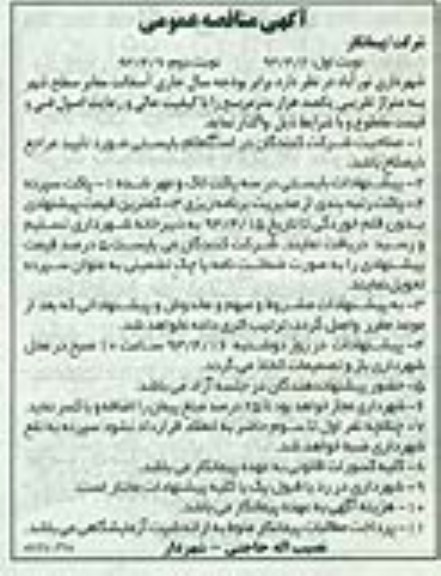 آگهی مناقصه عمومی
شرکت / پیمانکار
نوبت اول: ۹۳/۴/۲ نوبت دوم: ۹۳/۴/۹
شهرداری نورآباد در نظر دارد برابر بودجه سال جاری آسفالت معابر سطح شهر
به متراژ تقریبی یکصد هزار مترمربع را با کیفیت عالی و رعایت اصول فنی و
قیمت مقطوع و با شرایط ذیل واگذار نماید.
۱- صلاحیت شرکت کنندگان در استعلام بایستی مورد تأیید مراجع
ذیصلاح باشد.
۲- پیشنهادات بایستی در سه پاکت لاک و مهر شده ۱- پاکت سپرده
۲- پاکت رتبه بندی از مدیریت برنامه ریزی ۳- کمترین قیمت پیشنهادی
بدون قلم خوردگی تا تاریخ ۹۳/۴/۱۵ به دبیرخانه شهرداری تسلیم
و رسید دریافت نمایند. شرکت کنندگان می بایست ۵ درصد قیمت
پیشنهادی را به صورت ضمانت نامه یا چک تضمینی به عنوان سپرده
تحویل نمایند.
۳- به پیشنهادات مشروط و مبهم و مخدوش و پیشنهاداتی که بعد از
موعد مقرر واصل گردد، ترتیب اثری داده نخواهد شد.
۴- پیشنهادات در روز دوشنبه ۹۳/۴/۱۶ ساعت ۱۰ صبح در محل
شهرداری باز و تصمیمات اتخاذ می گردد.
۵- حضور پیشنهاددهندگان در جلسه آزاد می باشد.
۶- شهرداری مجاز خواهد بود تا ۲۵ درصد مبلغ پیمان را اضافه و یا کسر نماید.
۷- چنانچه نفر اول تا سوم حاضر به انعقاد قرارداد نشود سپرده به نفع
شهرداری ضبط خواهد شد.
۸- کلیه کسورات قانونی به عهده پیمانکار می باشد.
۹- شهرداری در رد یا قبول یک یا کلیه پیشنهادات مختار است.
۱۰- هزینه آگهی به عهده پیمانکار می باشد.
۱۱- پرداخت مطالبات پیمانکار منوط به ارائه شیت آزمایشگاهی می باشد.
نصیب اله حاجتی - شهردار